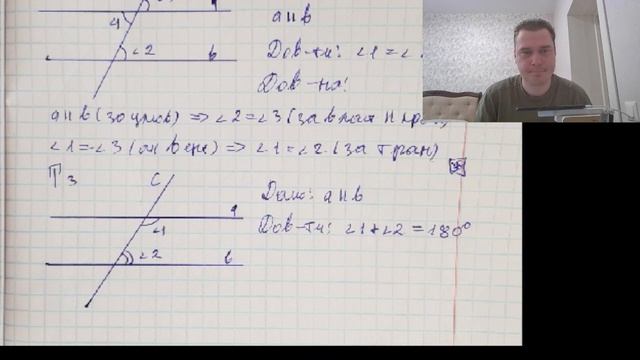 a
4
∠2 b
a ıı b
Дов-ти: ∠1 = ∠
Дов-ня:
a ıı b (за умов) => ∠2 = ∠3 (за
∠1 = ∠3 (як верт) => ∠1 = ∠2 (за тран)
T 3 c
a
∠1
∠2 b
Дано: a ıı b
Дов-ти: ∠1 + ∠2 = 180°